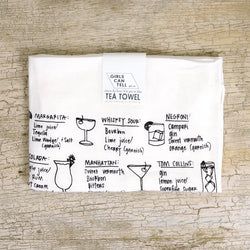 GIRLS
CAN
TELL
TEA TOWEL
MARGARITA:
Lime juice
Tequila
Lime Wedge/ + Salt
(garnish)
WHISKEY SOUR:
Bourbon
Lime juice/
Cherry (garnish)
NEGRONI
Campari
gin
Sweet vermouth
orange (garnish)
COLADA:
juice
Rum
Cream
MANHATTAN:
Sweet vermouth
Bourbon
Bitters
TOM COLLINS:
Gin
Lemon juice/
Sugar